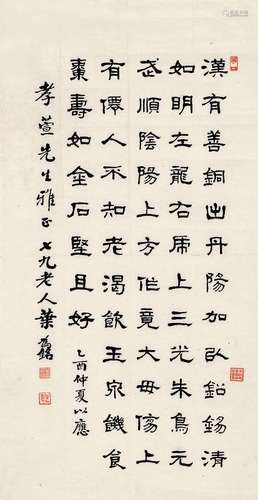 漢有善銅出丹陽加以鉛錫清
如明左龍右虎上三光朱鳥元
武順陰陽上方作竟大毋傷上
有僊人不知老渴飲玉泉饑食
棗壽如金石堅且好
乙酉仲夏以應
孝萱先生雅正七九老人葉為銘